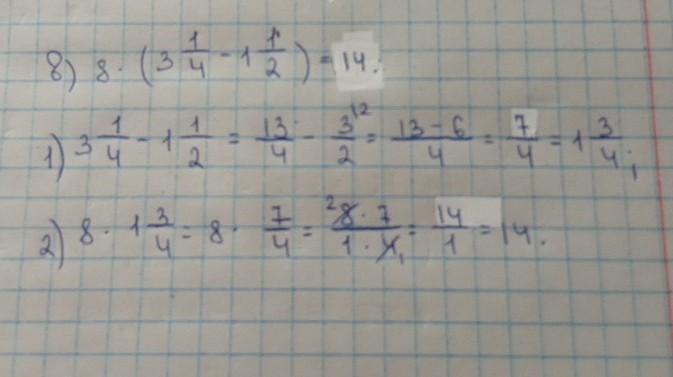 в) 8 · (3 1/4 - 1 1/2) = 14.
1) 3 1/4 - 1 1/2 = 13/4 - 3^12/2 = 13-6/4 = 7/4 = 1 3/4;
2) 8 · 1 3/4 = 8 · 7/4 = ²8·7/1·4₁ = 14/1 = 14.